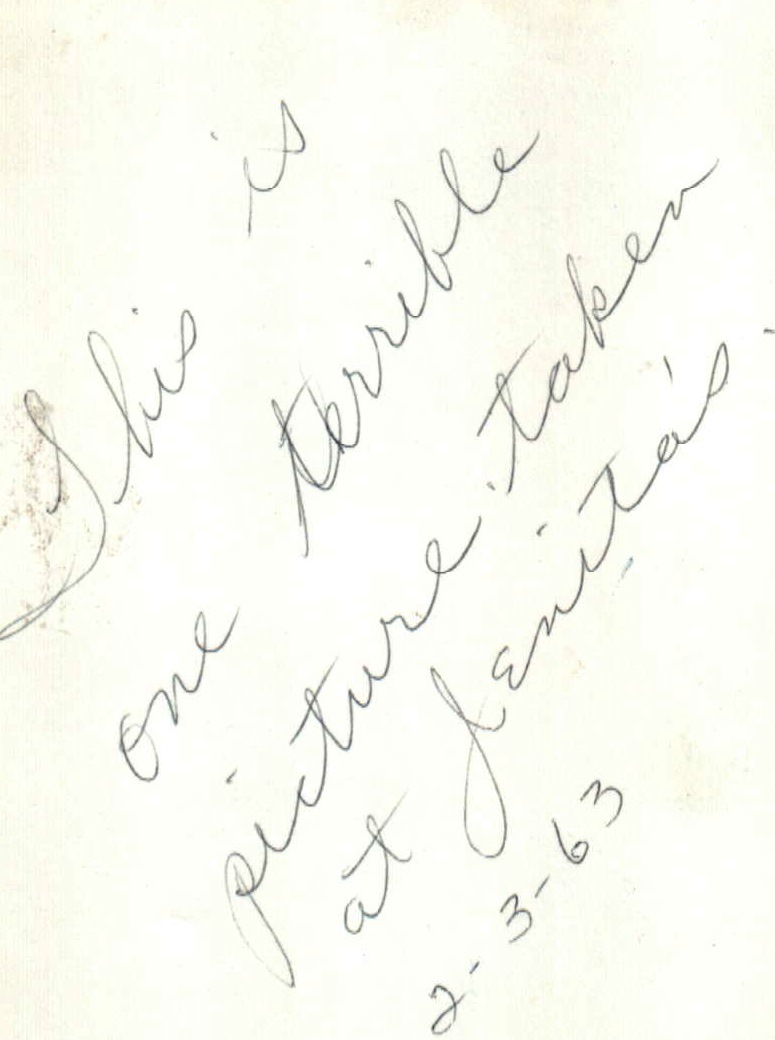 This is
one terrible
picture taken
at Jenita's
2-3-63